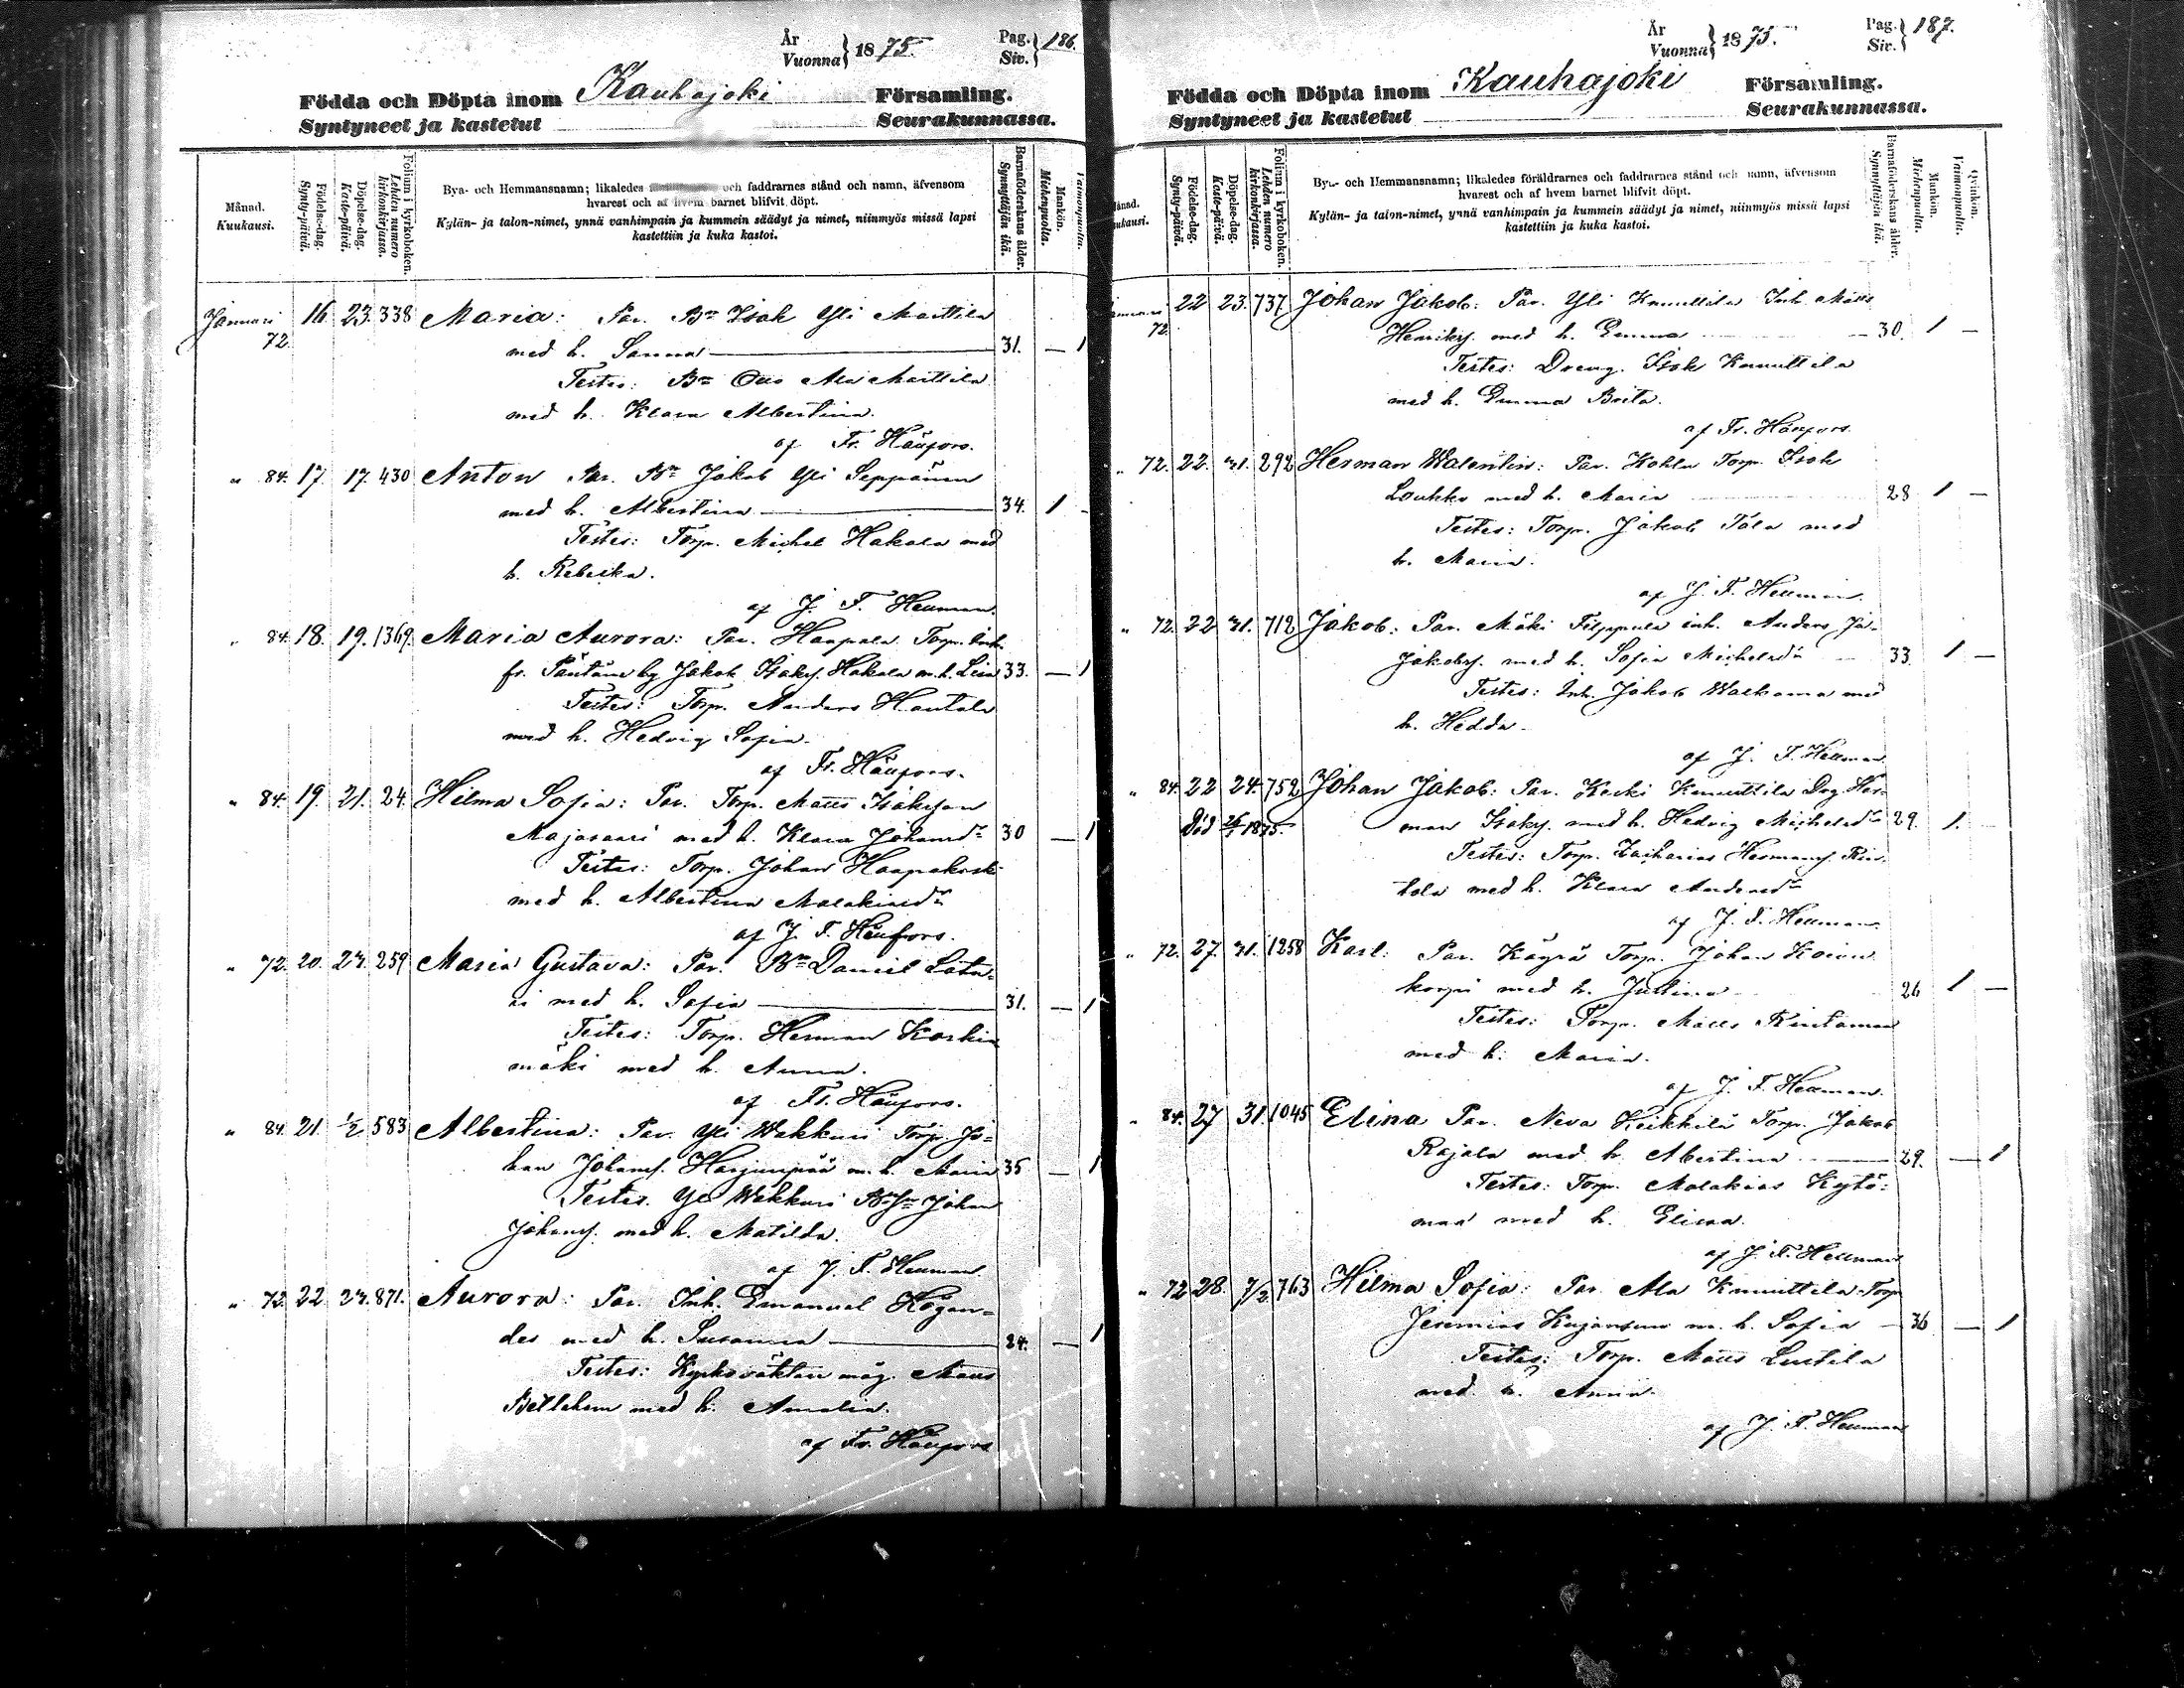 År
Vuonna } 1875.
Pag.
Siv. } 186.
Födda och Döpta inom Kauhajoki Församling.
Syntyneet ja kastetut Seurakunnassa.
Månad.
Kuukausi.
Födelse-dag.
Synty-päivä.
Döpelse-dag.
Kaste-päivä.
Folium i kyrkoboken.
Lehden numero kirkonkirjassa.
Bya- och Hemmansnamn; likaledes och faddrarnes stånd och namn, äfvensom
hvarest och af hvem barnet blifvit döpt.
Kylän- ja talon-nimet, ynnä vanhimpain ja kummein säädyt ja nimet, niinmyös missä lapsi
kastettiin ja kuka kastoi.
Barnaföderskans ålder.
Synnyttäjän ikä.
Mankön.
Miehenpuolia.
Vaimonpuolia.
Januari 16 23. 338 Maria: Par. Bn Isak Yli Marttila
72. med h. Sanna 31. — 1
Testes: Bn Otto Ala Marttila
med h. Klara Albertina.
af Fr. Häyfors.
" 84. 17. 17. 430 Anton Par. Bn Jakob Yli Seppänen
med h. Albertina 34. 1 -
Testes: Torp. Michel Hakala med
h. Rebecka.
af J. F. Hellman.
" 84. 18. 19. 1369. Maria Aurora: Par. Haapala Torp. inh.
fr. Päntäne by Jakob Isaks. Hakala m. h. Lisa 33. — 1
Testes: Torp. Anders Hautala
med h. Hedvig Sofia.
af Fr. Häyfors.
" 84. 19. 21. 24. Hilma Sofia: Par. Torp. Matts Isaksson
Majasaari med h. Klara Johansdr 30 — 1
Testes: Torp. Johan Haapakoski
med h. Albertina Malakiasdr
af J. F. Häyfors.
" 72. 20. 23. 259 Maria Gustava: Par. Bn Daniel
med h. Sofia 31. — 1
Testes: Torp. Herman Koskin
mäki med h. Anna.
af Fr. Häyfors.
" 84 21. ½ 583 Albertina: Par. Yli Wakkuri Torp. Jo=
han Johans. Harjunpää m. h. Maria 35 — 1
Testes. Yli Wakkuri Johan
Johans. med h. Matilda.
af J. F. Hellman.
" 72. 22 23. 871. Aurora: Par. Inh. Emanuel Högan=
der med h. Susanna 24. — 1
Testes: Kyrkoväktare måg. Matts
Betlehem med h. Amalia.
af Fr. Häyfors
År
Vuonna } 1875.
Pag.
Siv. } 187.
Födda och Döpta inom Kauhajoki Församling.
Syntyneet ja kastetut Seurakunnassa.
Födelse-dag.
Synty-päivä.
Döpelse-dag.
Kaste-päivä.
Folium i kyrkoboken.
Lehden numero kirkonkirjassa.
Bya- och Hemmansnamn; likaledes föräldrarnes och faddrarnes stånd och namn, äfvensom
hvarest och af hvem barnet blifvit döpt.
Kylän- ja talon-nimet, ynnä vanhimpain ja kummein säädyt ja nimet, niinmyös missä lapsi
kastettiin ja kuka kastoi.
Barnaföderskans ålder.
Synnyttäjän ikä.
Mankön.
Miehenpuolia.
Qvinkön.
Vaimonpuolia.
22 23. 737 Johan Jakob: Par. Yli Knuuttila Inh. Matts
72. Henriks. med h. Emma 30. 1 —
Testes: Dreng. Isak Knuuttila
med h. Emma Brita.
af Fr. Häyfors.
" 72. 22. 31. 292 Herman Walentin: Par. Kohla Torp. Isak
Loukko med h. Maria 28 1 —
Testes: Torp. Jakob Tala med
h. Maria.
af J. F. Hellman.
" 72. 22 31. 712 Jakob: Par. Mäki Filppula inh. Anders Ja=
Jakobs. med h. Sofia Michelsdr 33 1 —
Testes: Inh. Jakob Walkama med
h. Hedda.
af J. F. Hellman
" 84. 22 24. 752 Johan Jakob: Par. Keski Knuuttila Drg Her=
Död 1875. man Isaks. med h. Hedvig Michelsdr 29. 1.
Testes: Torp. Zacharias Hermans. Rin=
tala med h. Klara Andersdr
af J. F. Hellman.
" 72. 27. 31. 1258 Karl: Par. Käyrä Torp. Johan Koivu
korpi med h. Justina 26 1 —
Testes: Torp. Matts Rintamaa
med h. Maria.
af J. F. Hellman.
" 84. 27 31. 1045 Elina Par. Neva Keikkilä Torp. Jakob
Rajala med h. Albertina 29. — 1
Testes: Torp. Malakias Kytö=
maa med h. Elina.
af J. F. Hellman
" 72 28. 7/2 763 Hilma Sofia: Par. Ala Knuuttila Torp
Jeremias Kujanpuu m. h. Sofia 36 — 1
Testes: Torp. Matts Luttila
med h. Anna.
af J. F. Hellman